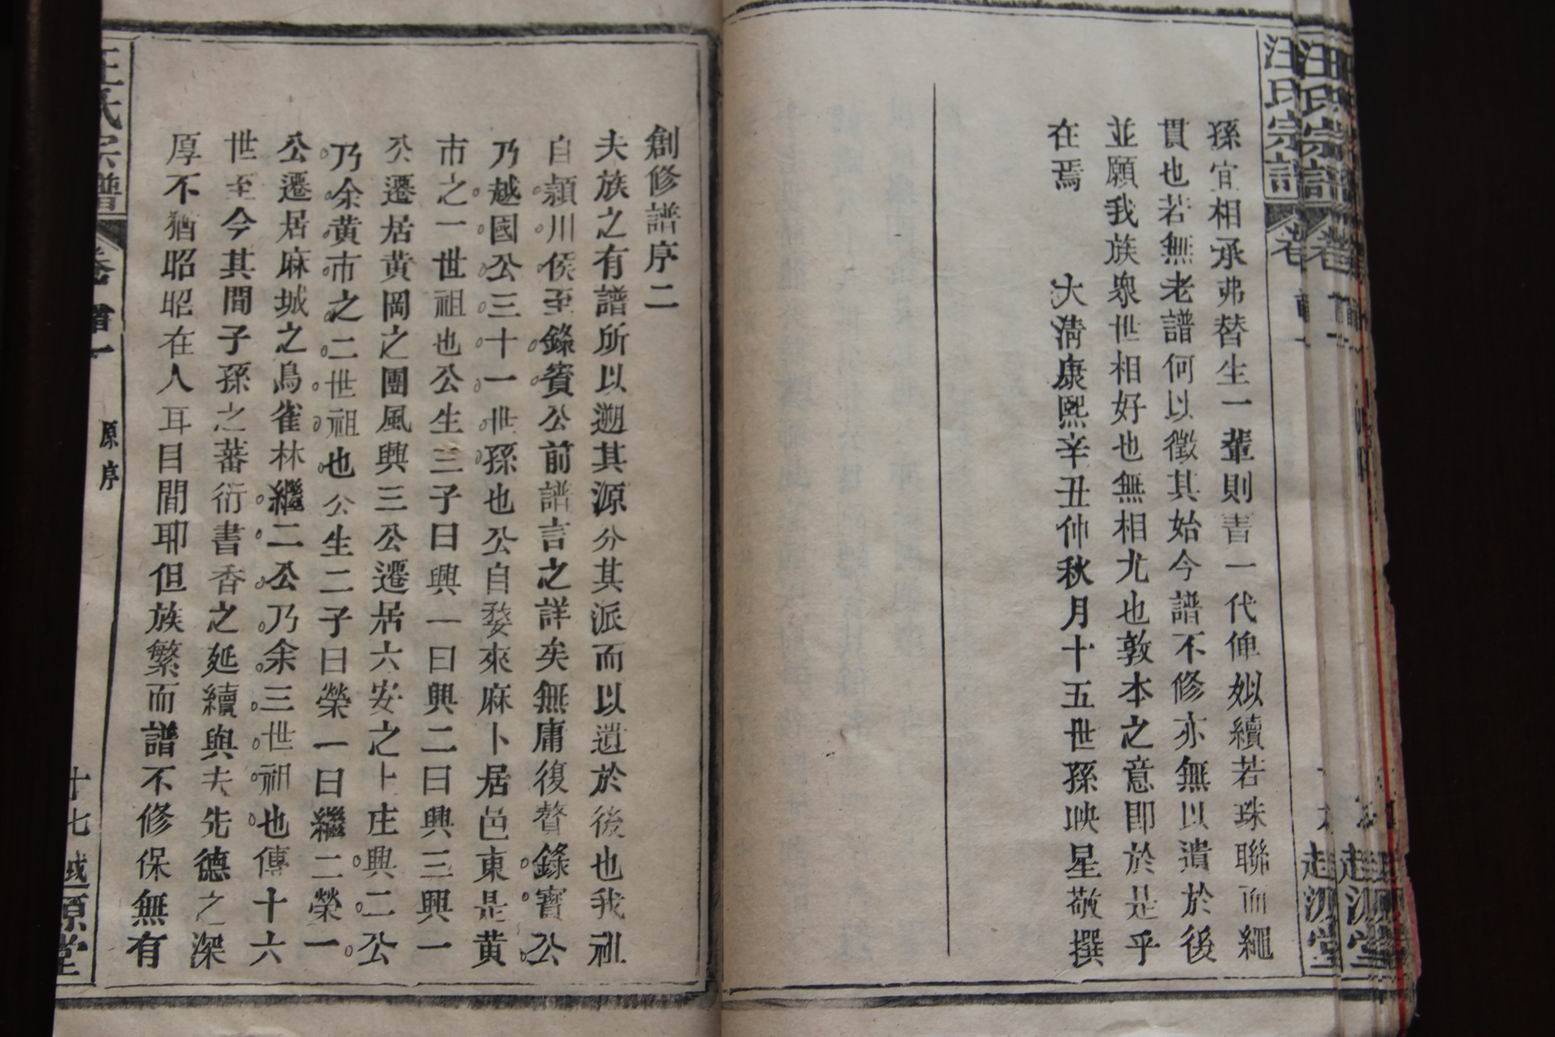 汪氏宗譜
孫宜相承弗替生一輩則書一代俾姒續若珠聯而繩
貫也若無老譜何以徵其始今譜不修亦無以遺於後
並願我族衆世相好也無相尤也敦本之意即於是乎
在焉
大淸康熙辛丑仲秋月十五世孫映星敬撰
創修譜序二
夫族之有譜所以遡其源分其派而以遺於後也我祖
自潁川侯至錄賓公前譜言之詳矣無庸復贅錄寶公
乃越國公三十一世孫也公自婺來麻卜居邑東是黃
市之一世祖也公生三子曰興一曰興二曰興三興一
公遷居黃岡之團風興三公遷居六安之上庄興二公
乃余黃市之二世祖也公生二子曰榮一曰繼二榮一
公遷居麻城之鳥雀林繼二公乃余三世祖也傳十六
世至今其間子孫之蕃衍書香之延續與夫先德之深
厚不猶昭昭在人耳目間耶但族繁而譜不修保無有
汪氏宗譜 卷首一 原序 十七 越源堂